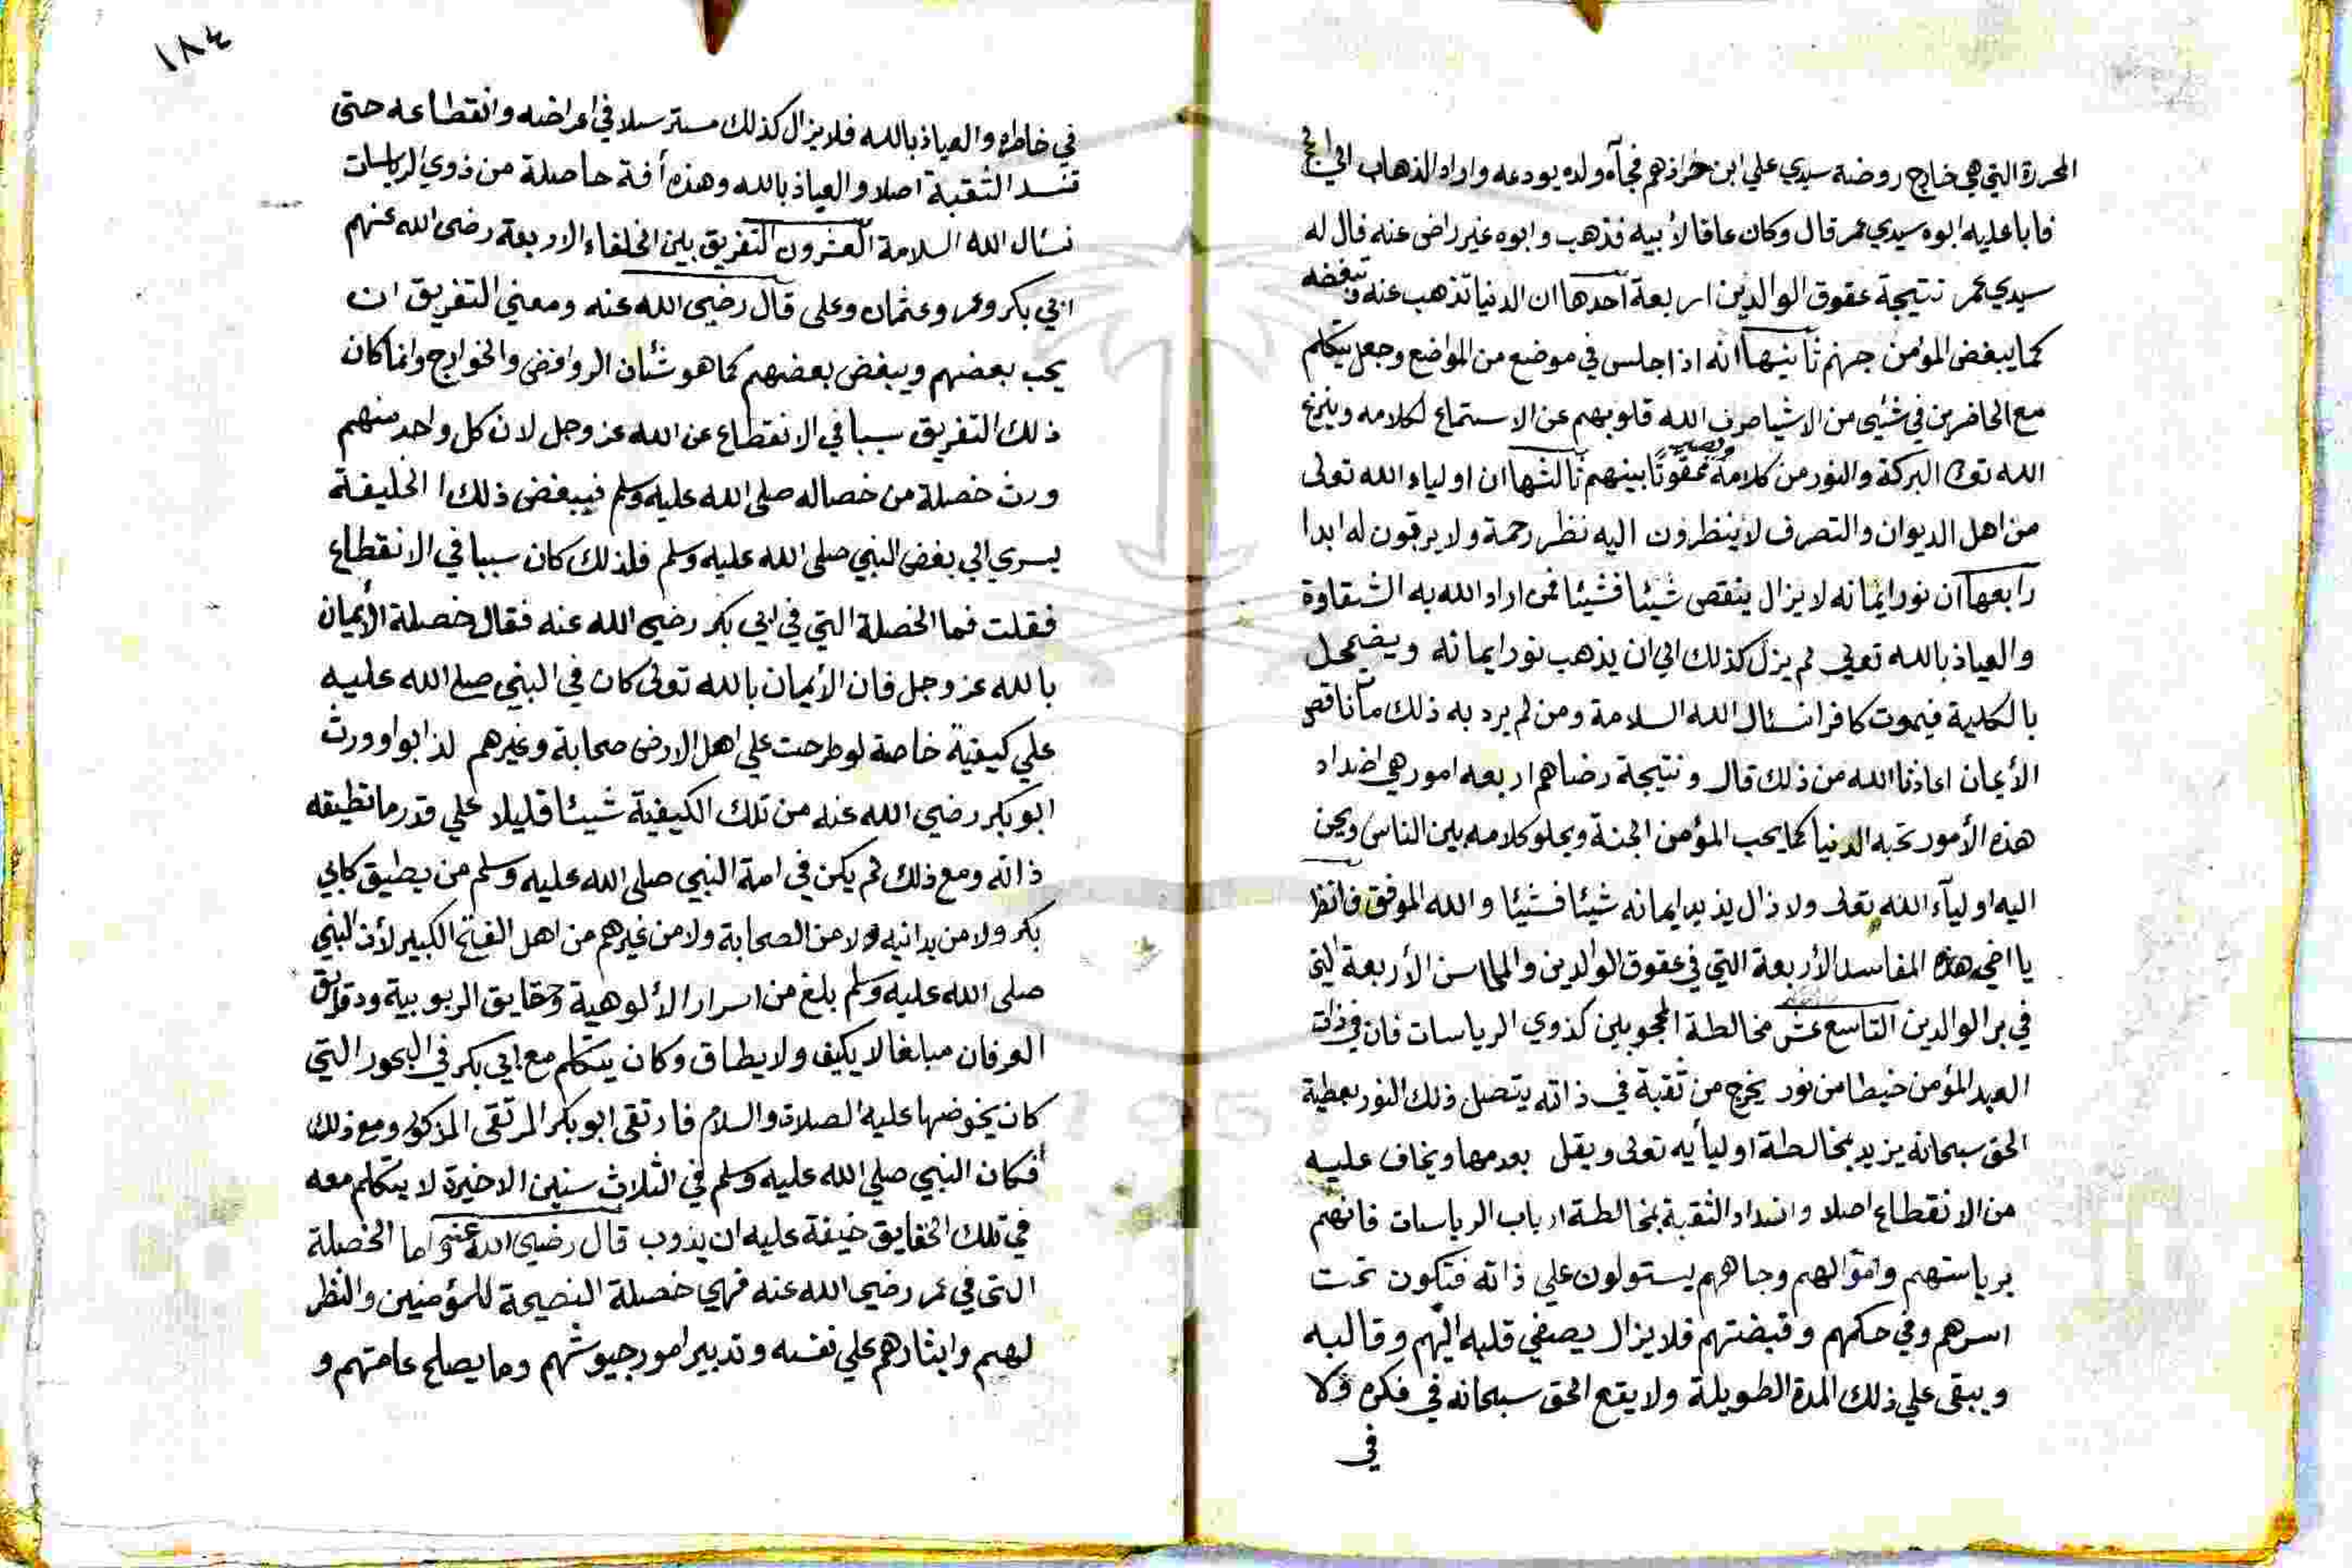 المحررة التي هي خارج روضة سيدي علي ابن حرازهم فجآه ولده يودعه واراد الذهاب الي الحج
فابا عليه ابوه سيدي عمر قال وكان عاقا لأبيه فذهب وابوه غير راض عنه قال له
سيدي عمر نتيجة عقوق الوالدين اربعة احدها ان الدنيا تذهب عنه وتبغضه
كما يبغض المؤمن جهنم ثانيها انه اذا جلس في موضع من المواضع وجعل يتكلم
مع الحاضرين في شئي من الاشيا صرف الله قلوبهم عن الاستماع لكلامه وينزع
الله تعالى البركة والنور من كلامه ويصير ممقوتا بينهم ثالثها ان اولياء الله تعولى
من اهل الديوان والتصرف لا ينظرون اليه نظر رحمة ولا يرقون له ابدا
رابعها ان نور ايمانه لا يزال ينقص شيئا فشيئا فمن اراد الله به الشقاوة
والعياذ بالله تعولي لم يزل كذلك الي ان يذهب نور ايمانه ويضمحل
بالكلية فيموت كافرا نسال الله السلامة ومن لم يرد به ذلك مآ ناقص
الأيمان اعاذنا الله من ذلك قال ونتيجة رضاهم اربعه امور هي اضداد
هذه الأمور تحبه الدنيا كما يحب المؤمن الجنة ويحلو كلامه بين الناس ويحن
اليه اوليآء الله تعولى ولا ذال يذيد ايمانه شيئا فشيئا والله الموفق فانظر
يا اخي هذه المفاسد الأربعة التي في عقوق الوالدين والمحاسن الأربعة التي
في بر الوالدين التاسع عشر مخالطة المحجوبين كذوي الرياسات فان في ذات
العبد المؤمن خيطا من نور يخرج من ثقبة في ذاته يتصل ذلك النور بعطية
الحق سبحانه يزيد بمخالطة اوليأيه تعولى ويقل بعدمها ويخاف عليه
من الانقطاع اصلا وانسداد الثقبة بمخالطة ارباب الرياسات فانهم
برياستهم واموالهم وجاههم يستولون علي ذاته فتكون تحت
اسرهم وفي حكمهم وقبضتهم فلا يزال يصغي قلبه اليهم وقالبه
ويبقى علي ذلك المدة الطويلة ولا يقع الحق سبحانه في فكره ولا
في
١٨٤
في خاطره والعياذ بالله فلا يزال كذلك مسترسلا في اعراضه وانقطاعه حتى
تنسد الثقبة اصلا والعياذ بالله وهذه أفة حاصلة من ذوي الرياسات
نسال الله السلامة العشرون التفريق بين الخلفاء الاربعة رضى الله عنهم
ابي بكر وعمر وعثمان وعلى قال رضي الله عنه ومعني التفريق ان
يحب بعضهم ويبغض بعضهم كما هو شأن الروافض والخوارج وانما كان
ذلك التفريق سببا في الانقطاع عن الله عز وجل لان كل واحد منهم
ورث خصلة من خصاله صلى الله عليه وسلم فيبغض ذلك الخليفة
يسري الي بغض النبي صلى الله عليه وسلم فلذلك كان سببا في الانقطاع
فقلت فما الخصلة التي في ابي بكر رضي الله عنه فقال خصلة الأيمان
بالله عز وجل فان الأيمان بالله تعولى كان في النبي صلى الله عليه
علي كيفية خاصة لو طرحت علي اهل الارض صحابة وغيرهم لذابوا وورث
ابو بكر رضي الله عنه من تلك الكيفية شيئا قليلا علي قدر ما تطيقه
ذاته ومع ذلك لم يكن في امة النبي صلى الله عليه وسلم من يطيق كابي
بكر ولا من يدانيه ولا من الصحابة ولا من غيرهم من اهل الفتح الكبير لأن النبي
صلى الله عليه وسلم بلغ من اسرار الألوهية وحقايق الربوبية ودقايق
العرفان مبلغا لا يكيف ولا يطاق وكان يتكلم مع ابي بكر في البحور التي
كان يخوضها عليه الصلاة والسلام فارتقى ابو بكر المرتقى المذكور ومع ذلك
فكان النبي صلي الله عليه وسلم في الثلاث سنين الاخيرة لا يتكلم معه
في تلك الحقايق خيفة عليه ان يذوب قال رضي الله عنه واما الخصلة
التي في عمر رضي الله عنه فهي خصلة النصيحة للمؤمنين والنظر
لهم وايثارهم علي نفسه وتدبير امور جيوشهم وما يصلح عامتهم و